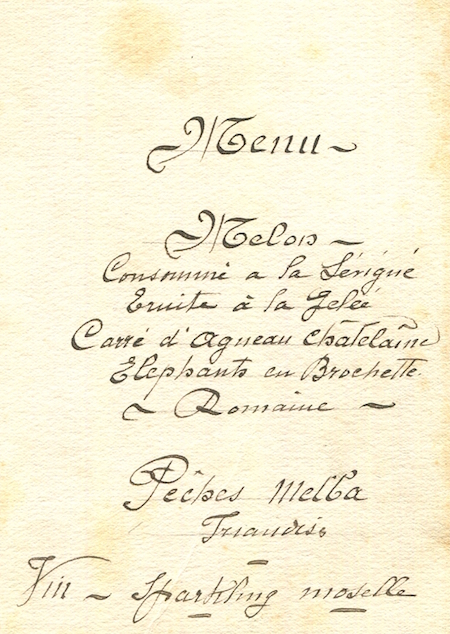 Menu
Melon
Consommé a la Sérigné
Truite à la Gelée
Carré d'Agneau Châtelaine
Elephants en Brochette
Romaine
Pêches Melba
Friandis
Vin - Sparkling moselle